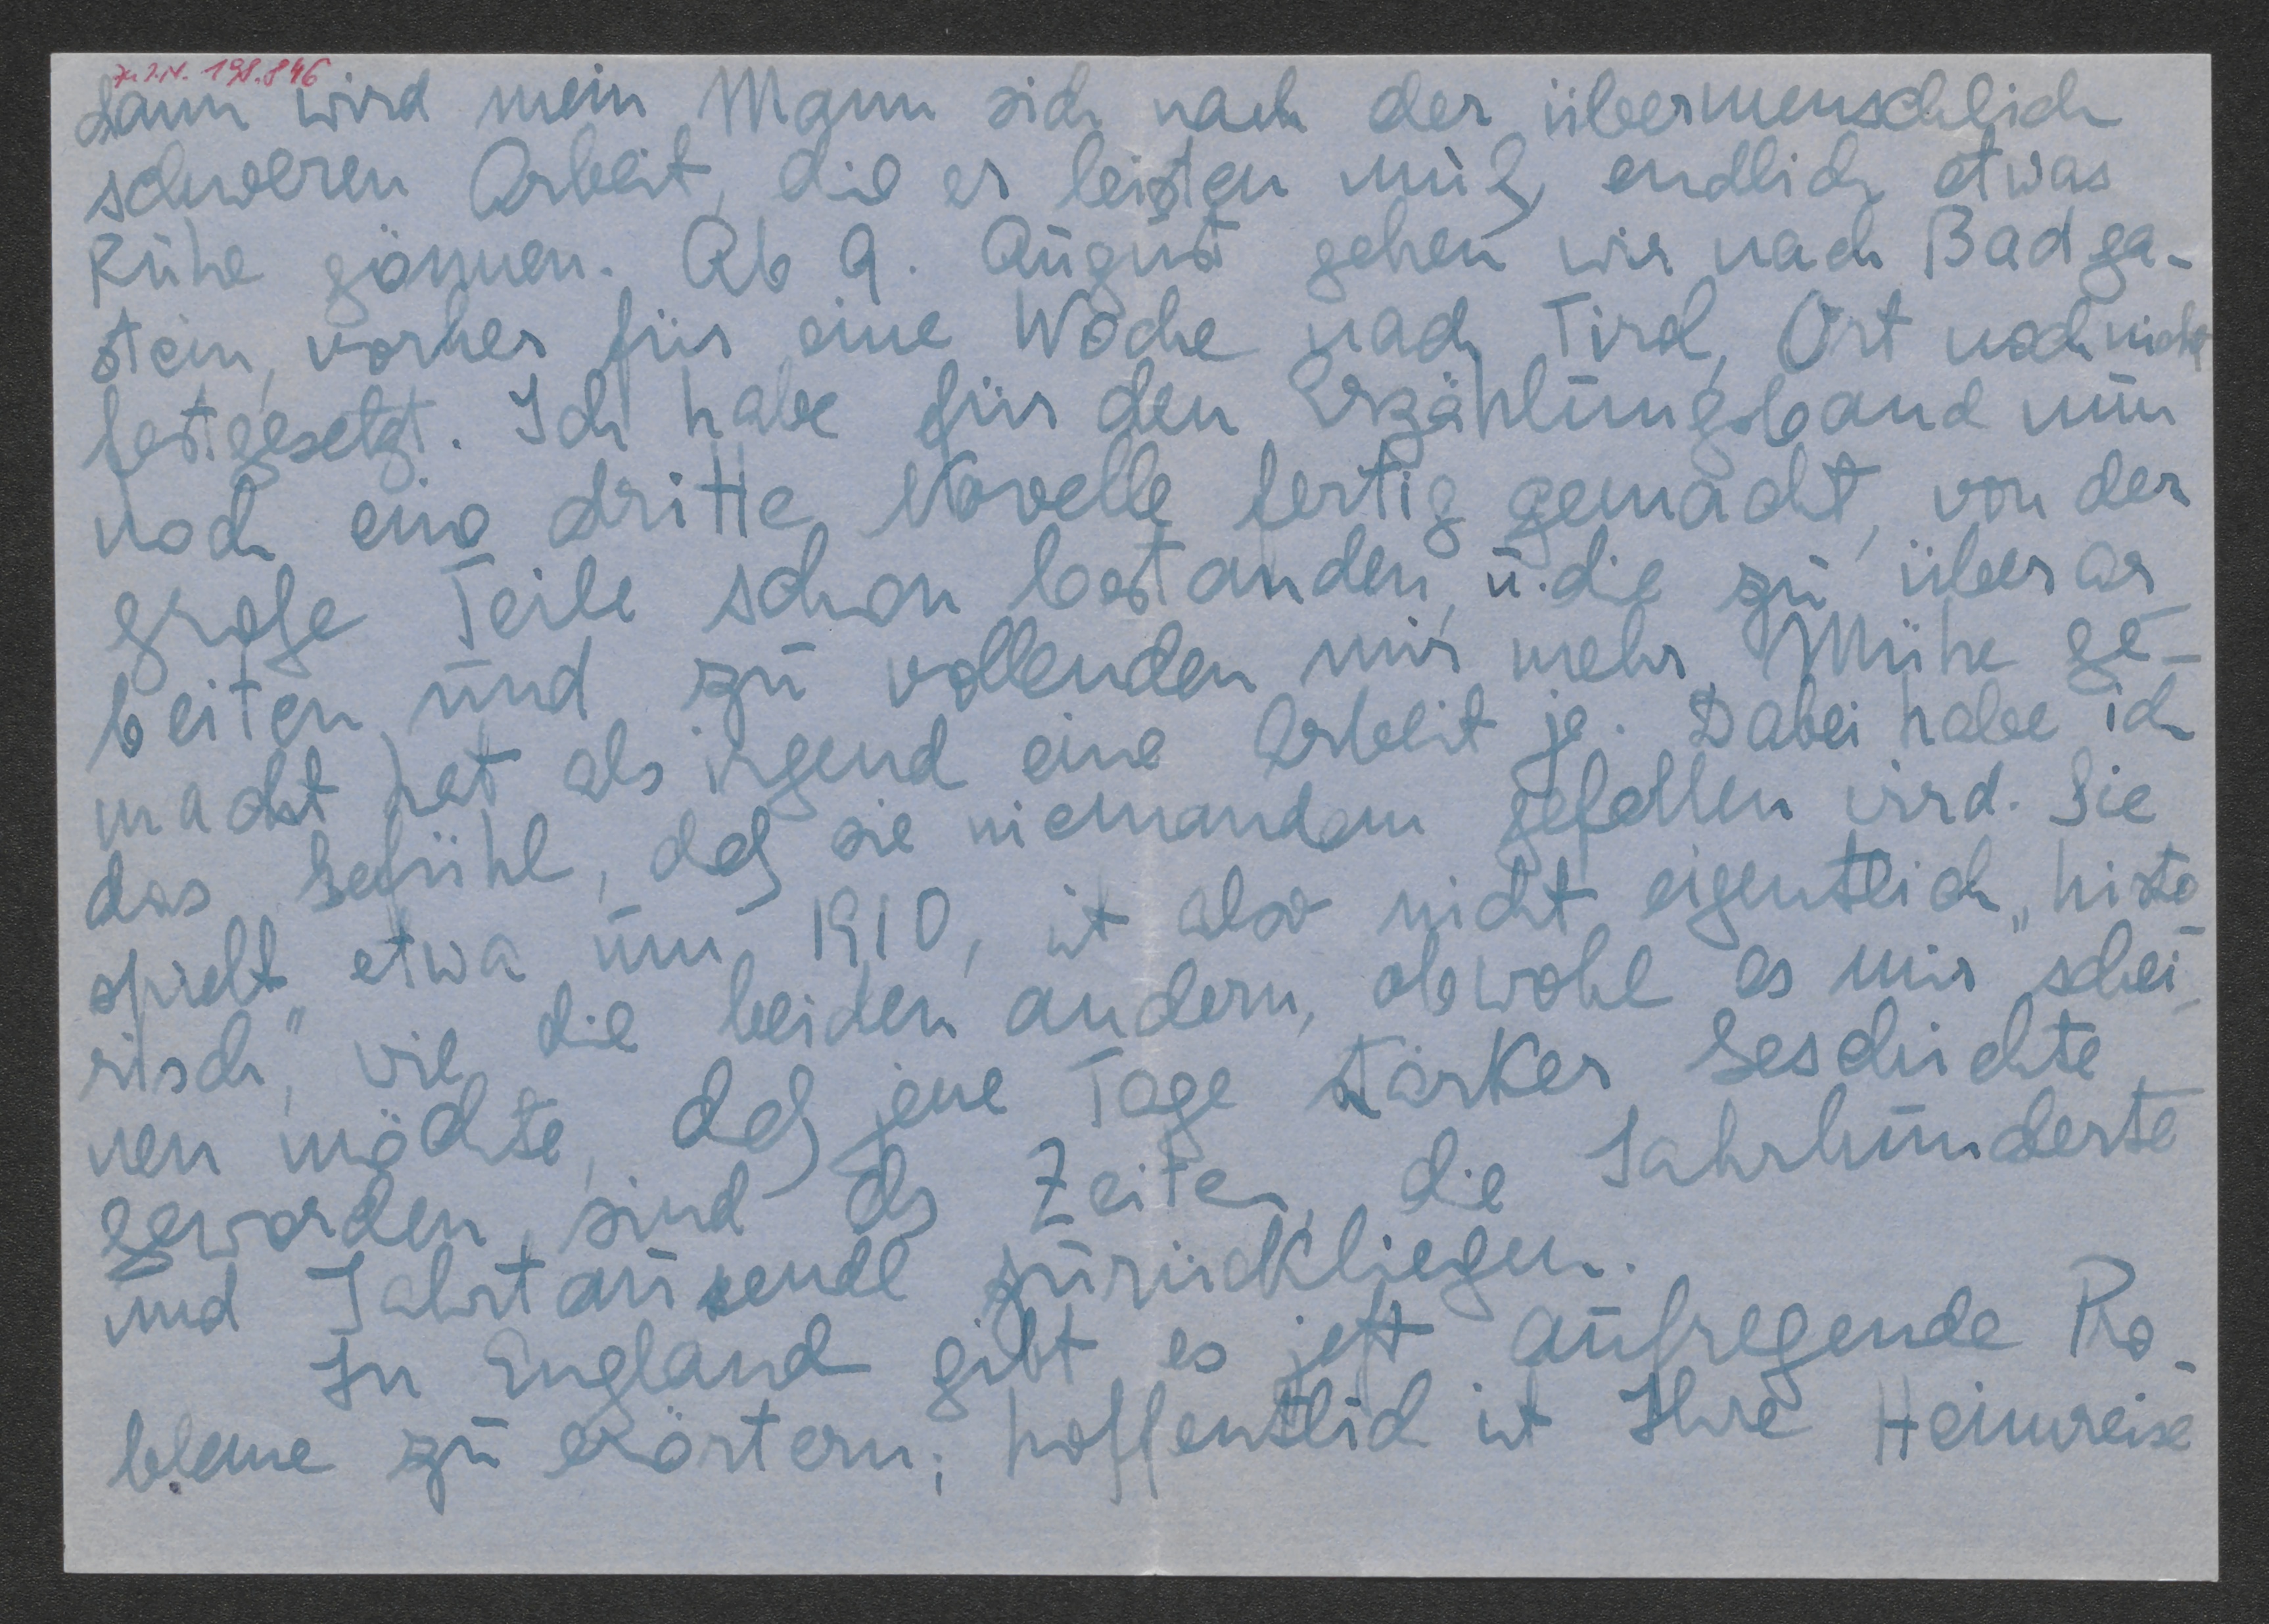 Zu I.N. 198.846
dann wird mein Mann sich nach der übermenschlich
schweren Arbeit, die er leisten muß, endlich etwas
Ruhe gönnen. Ab 9. August gehen wir nach Badga-
stein, vorher für eine Woche nach Tirol, Ort noch nicht
festgesetzt. Ich habe für den Erzählungsband nun
noch eine dritte Novelle fertig gemacht, von der
große Teile schon bestanden, u. die zu überar-
beiten und zu vollenden mir mehr Mühe ge-
macht hat als irgend eine Arbeit je. Dabei habe ich
das Gefühl, daß sie niemandem gefallen wird. Sie
spielt etwa um 1910, ist also nicht eigentlich „histo-
risch", wie die beiden andern, obwohl es mir schei-
nen möchte, daß jene Tage stärker Geschichte
geworden sind als Zeiten, die Jahrhunderte
und Jahrtausende zurückliegen.
In England gibt es jetzt aufregende Pro-
bleme zu erörtern; hoffentlich ist Ihre Heimreise